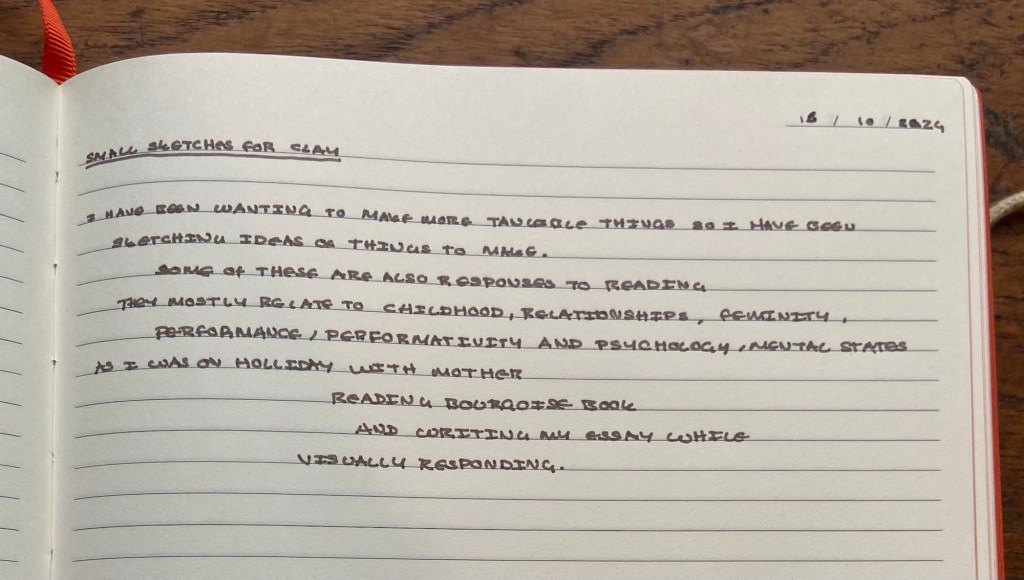 18 / 10 / 2024
SMALL SKETCHES FOR CLAY
I HAVE BEEN WANTING TO MAKE MORE TANGEABLE THINGS SO I HAVE BEEN
SKETCHING IDEAS OF THINGS TO MAKE.
SOME OF THESE ARE ALSO RESPONSES TO READING
THEY MOSTLY RELATE TO CHILDHOOD, RELATIONSHIPS, FEMINITY,
PERFORMANCE / PERFORMATIVITY AND PSYCHOLOGY, MENTAL STATES
AS I WAS ON HOLLIDAY WITH MOTHER
READING BOURGOISE BOOK
AND WRITING MY ESSAY WHILE
VISUALLY RESPONDING.